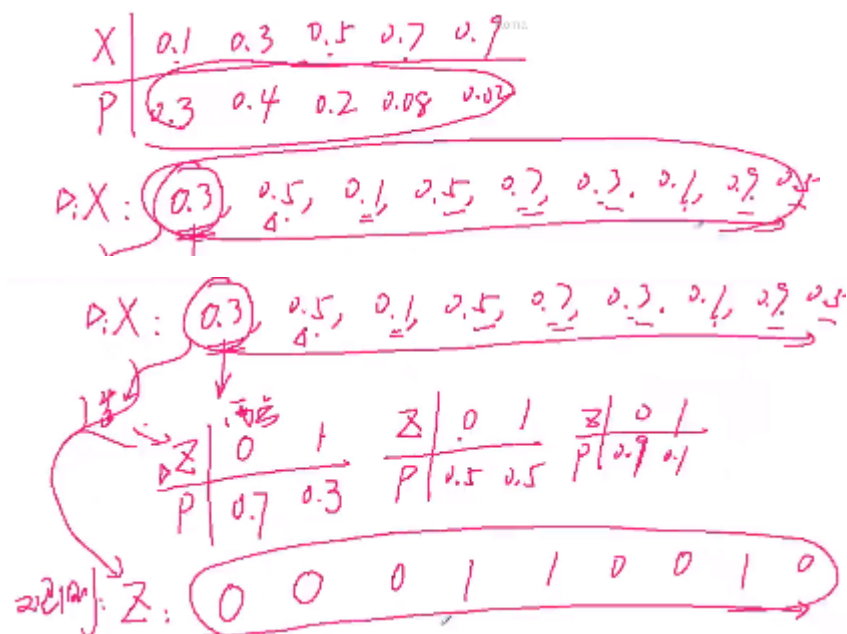 X 0.1 0.3 0.5 0.7 0.9
P 0.3 0.4 0.2 0.08 0.02
X: 0.3, 0.5, 0.1, 0.5, 0.7, 0.3, 0.1, 0.9 0.5
X: 0.3, 0.5, 0.1, 0.5, 0.7, 0.3, 0.1, 0.9 0.5
Z 0 1 Z 0 1 Z 0 1
P 0.7 0.3 P 0.5 0.5 P 0.9 0.1
Z: 0 0 0 1 1 0 0 1 0